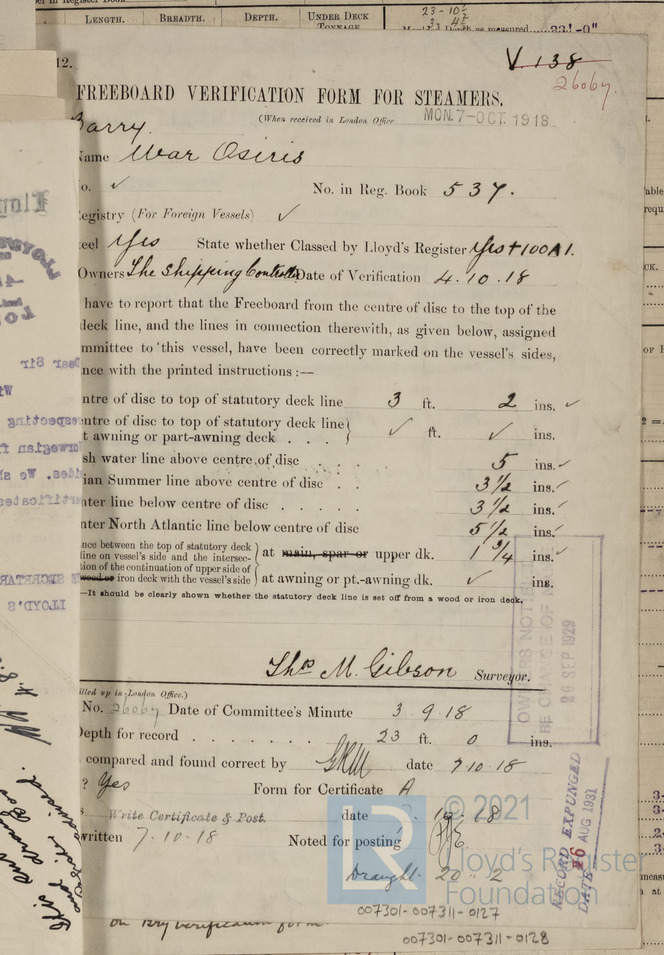 LENGTH. BREADTH. DEPTH. UNDER DECK TONNAGE
12.
V.138
26067.
FREEBOARD VERIFICATION FORM FOR STEAMERS.
(When received in London Office MON. 7-OCT. 1918
Barry.
Name War Osiris
No. ✓ No. in Reg. Book 537.
Registry (For Foreign Vessels) ✓
eel Yes State whether Classed by Lloyd's Register Yes +100A1.
Owners The Shipping Controller Date of Verification 4.10.18
have to report that the Freeboard from the centre of disc to the top of the
deck line, and the lines in connection therewith, as given below, assigned
mmittee to this vessel, have been correctly marked on the vessel's sides,
nce with the printed instructions :—
ntre of disc to top of statutory deck line 3 ft. 2 ins. ✓
entre of disc to top of statutory deck line
t awning or part-awning deck . . . ✓ ft. ✓ ins.
sh water line above centre of disc . . . . 5 ins. ✓
ian Summer line above centre of disc . . 3 1/2 ins. ✓
nter line below centre of disc . . . . 3 1/2 ins. ✓
nter North Atlantic line below centre of disc 5 1/2 ins. ✓
nce between the top of statutory deck
line on vessel's side and the intersec-
tion of the continuation of upper side of
wood or iron deck with the vessel's side
at main, spar or upper dk. 1 3/4 ins. ✓
at awning or pt.-awning dk. ✓ ins.
—It should be clearly shown whether the statutory deck line is set off from a wood or iron deck.
Thos M. Gibson Surveyor.
illed up in London Office.)
No. 26067 Date of Committee's Minute 3 9.18
Depth for record . . . . . . . 23 ft. 0 ins.
compared and found correct by date 7 10.18
? Yes Form for Certificate A
s. Write Certificate & Post. date 18
written 7.10.18 Noted for posting
Draught 20 .. 2
OWNERS NOT
26 SEP 1929
RECORD EXPUNGED
DATE 26 AUG 1931
© 2021
LR
Lloyd's Register
Foundation
007301-007311-0127
007301-007311-0128